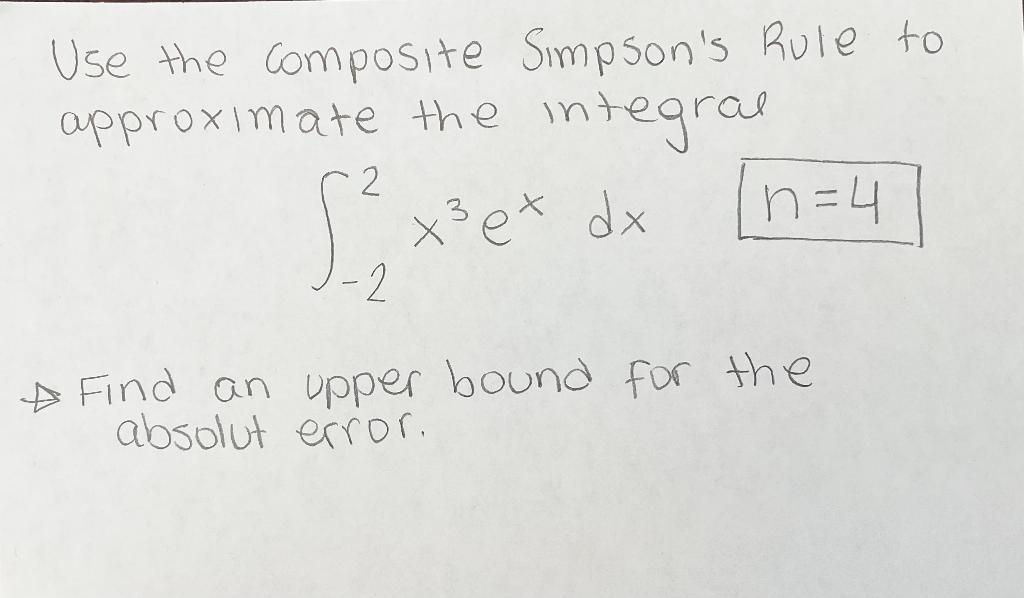 Use the composite Simpson's Rule to
approximate the integral
∫_{-2}^{2} x³eˣ dx n=4
→ Find an upper bound for the
absolut error.